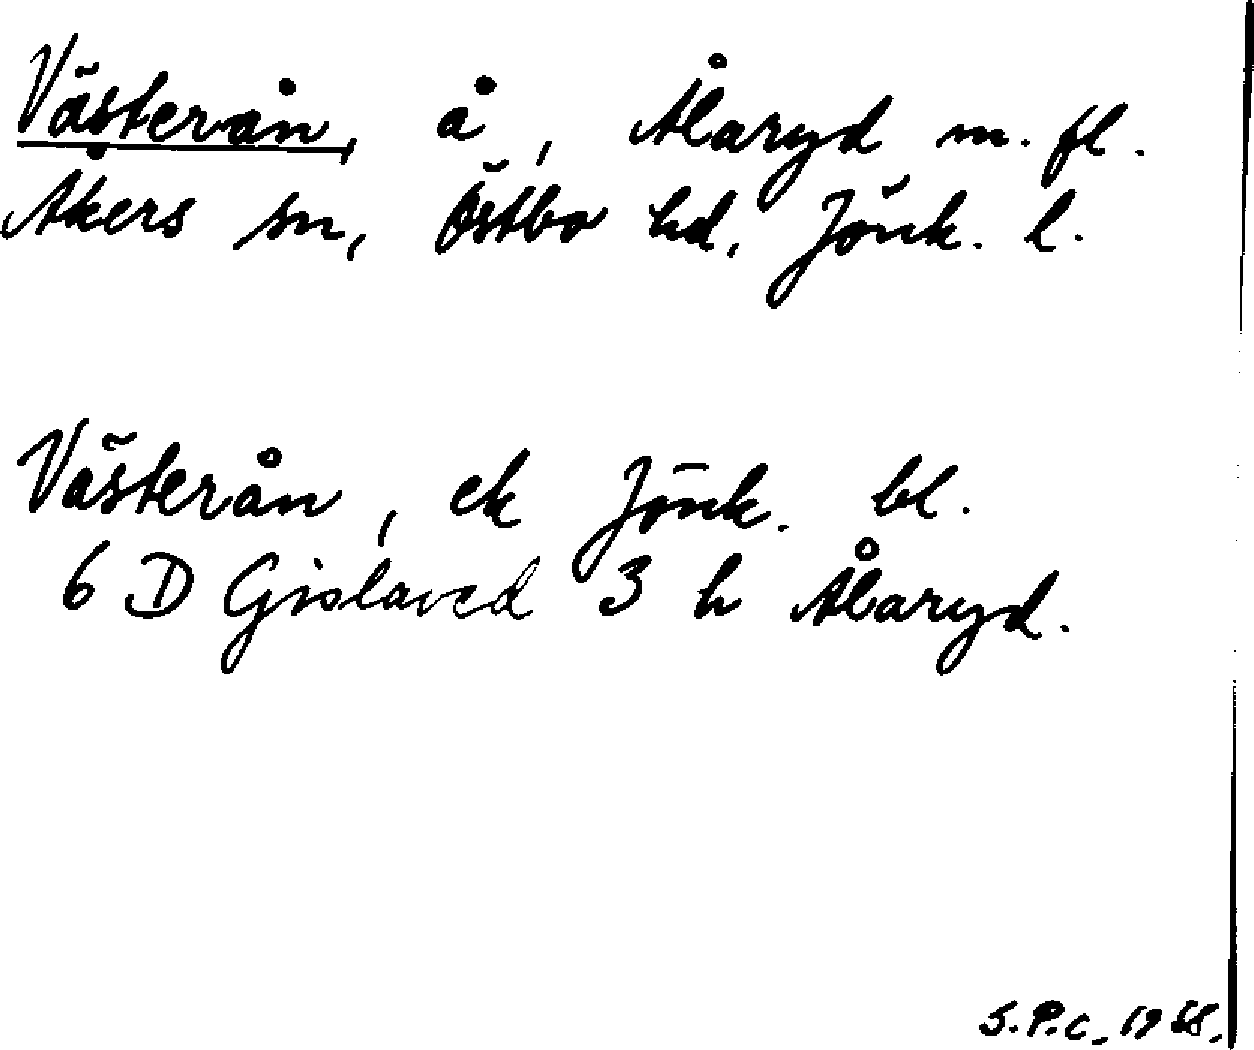 Västerån, å, Ålaryd m. fl.
Åkers sn, Östbo hd, Jönk. l.
Västerån, ek Jönk. bl.
6 D Gislaved 3 h Ålaryd.
S.P.C. 1968.